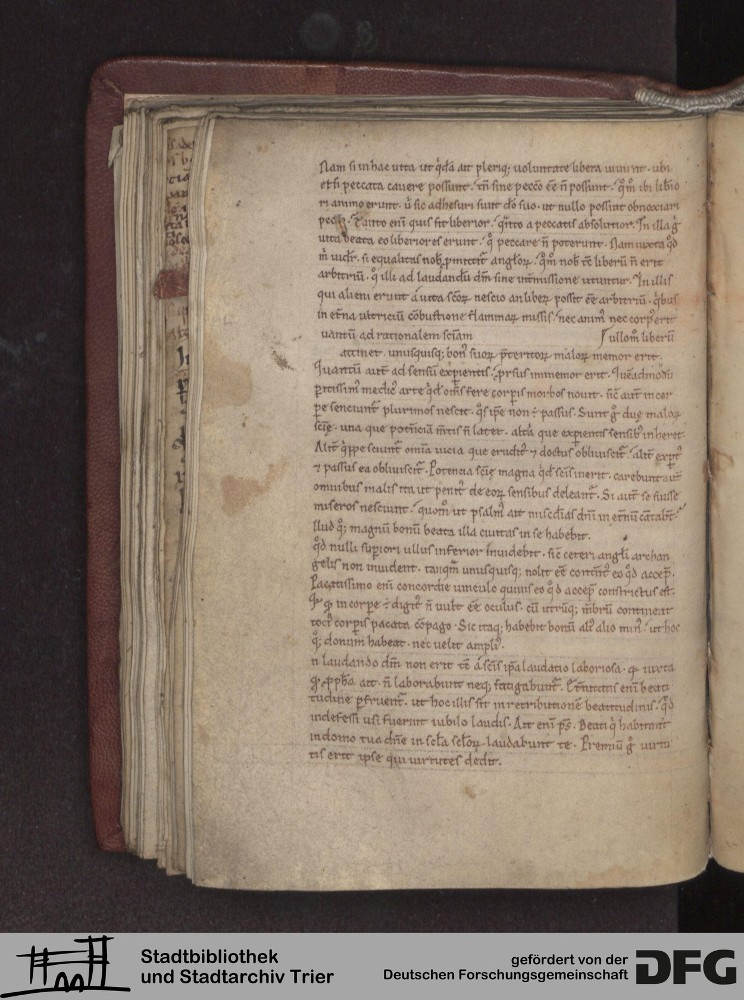 Nam si in hac uita ut q̇dā ait pleriq; uoluntate libera uiuunt . ubi
etsi peccata cauere possunt . tñ sine pecco ēē ñ possunt . q̊m ibi libio
ri animo erunt . ů sic adhesuri sunt dō suo . ut nullo possint obnoxiari
pecco . Tanto enī quis fit liberior . q̄nto a peccatis absolutior . In illa g̊
uita beata eo liberiores erunt . q̊ peccare ñ poterunt . Nam iuxta q̊d
m̄ uidr̄ . si equalitas nob̄ p̄mittit̄ angl̄oꝝ . q̊m nob̄ tc̄ liberū ñ erit
arbitriū . q̊ illi ad laudandū dm̄ sine int̄missione utuntur . In illis
qui alieni erunt a uita sc̄oꝝ nescio an liberū possit ēē arbitriū . q̇bus
in et̄na ultricium cōbustione flammaꝝ missis . nec animi nec corp̄ erit
uantū ad rationalem sc̄iam ullom̄ liberū
attinet . unusquisq; bon̄ suoꝝ p̄teritoꝝ maloꝝ memor erit .
Quantū aut̄ ad sensū exp̄ientis . p̄rsus inmemor erit . Quēadmodū
p̄itissim̄ medic̄ arte q̊d om̄s fere corp̄is morbos nouit . sic̄ aut̄ in cor
pe senciunt̄ plurimos nescit . q̊s ip̄e non ÷ passus . Sunt g̊ due maloꝝ
scīe . una que potn̄ciā m̄tis ñ latet . alt̄a que exp̄ientis sensib; inheret .
Alit̄ q̇ppe sciunt̄ omīa uicia que erudit̄ ⁊ doctus obliuiscit̄ . alit̄ exp̄t̄
⁊ passus ea obliuiscit̄ . Potencia scīe magna q̊d sc̄is inerit . carebunt aut̄
omnibus malis ita ut penit̄ de eoꝝ sensibus deleant̄ . Si aut̄ se fuisse
miseros nesciunt . quom̊ ut psalm̄ ait mis̄cdias dn̄i in et̄nū cātabt̄ .
llud q; magnū bonū beata illa ciuitas in se habebit .
q̊d nulli sup̄iori ullus inferior inuidebit . sic̄ ceteri angl̄i archan
gelis non inuident . tanq̄m unusquisq; nolit ēē contin̄t̄ eo q̊d accep̄ .
Pacatissimo enī concordie uinculo quiuis eo q̊d accep̄ constrictus est .
in corpe ÷ digit̄ ñ uult ēē oculus . cū utrūq; m̄brū contineat
toci̊ corp̄is pacata cōpago . Sic itaq; habebit bonū ali̊ alio min̄ . ut hoc
q; donum habeat . nec uelit ampli̊ .
n laudando dm̄ non erit tē a sc̄is ip̄a laudatio laboriosa . iuxta
pp̄ha ait . ñ laborabunt neq; fatigabunt̄ . Et̄nitatis enī beati
tudine p̄fruent̄ . ut hoc illis sit in retributionē beatitudinis . q̊d
indefessi usi fuerint iubilo laudis . Ait enī ps̄ . Beati q̇ habitant
in domo tua dn̄e in scl̄a scl̄oꝝ laudabunt te . Premiū g̊ uirtu
tis erit ipse qui uirtutes dedit .
Stadtbibliothek
und Stadtarchiv Trier
gefördert von der
Deutschen Forschungsgemeinschaft
DFG